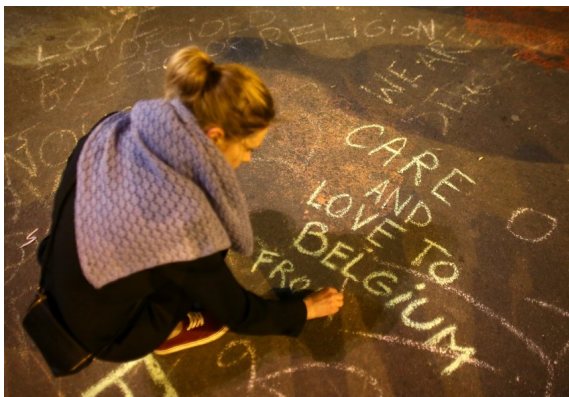 LOVE
DECIDED
BY COLOR RELIGION
WE ARE
NO
CARE
AND
LOVE TO
BELGIUM
FRO